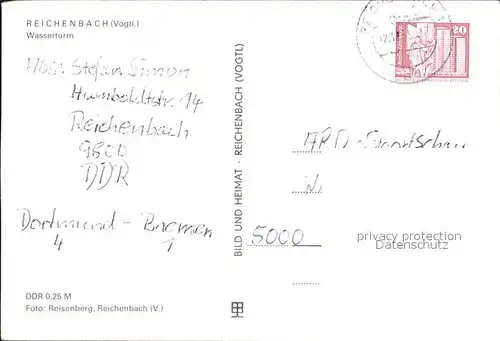 REICHENBACH (Vogtl.)
Wasserturm
Abs.: Stefan Simon
Humboldtstr. 14
Reichenbach
9800
DDR
Dortmund - Bremen
4 1
DDR 0,25 M
Foto: Reisenberg, Reichenbach (V.)
BILD UND HEIMAT · REICHENBACH (VOGTL)
20
ARD-Sportschau
5000
privacy protection
Datenschutz